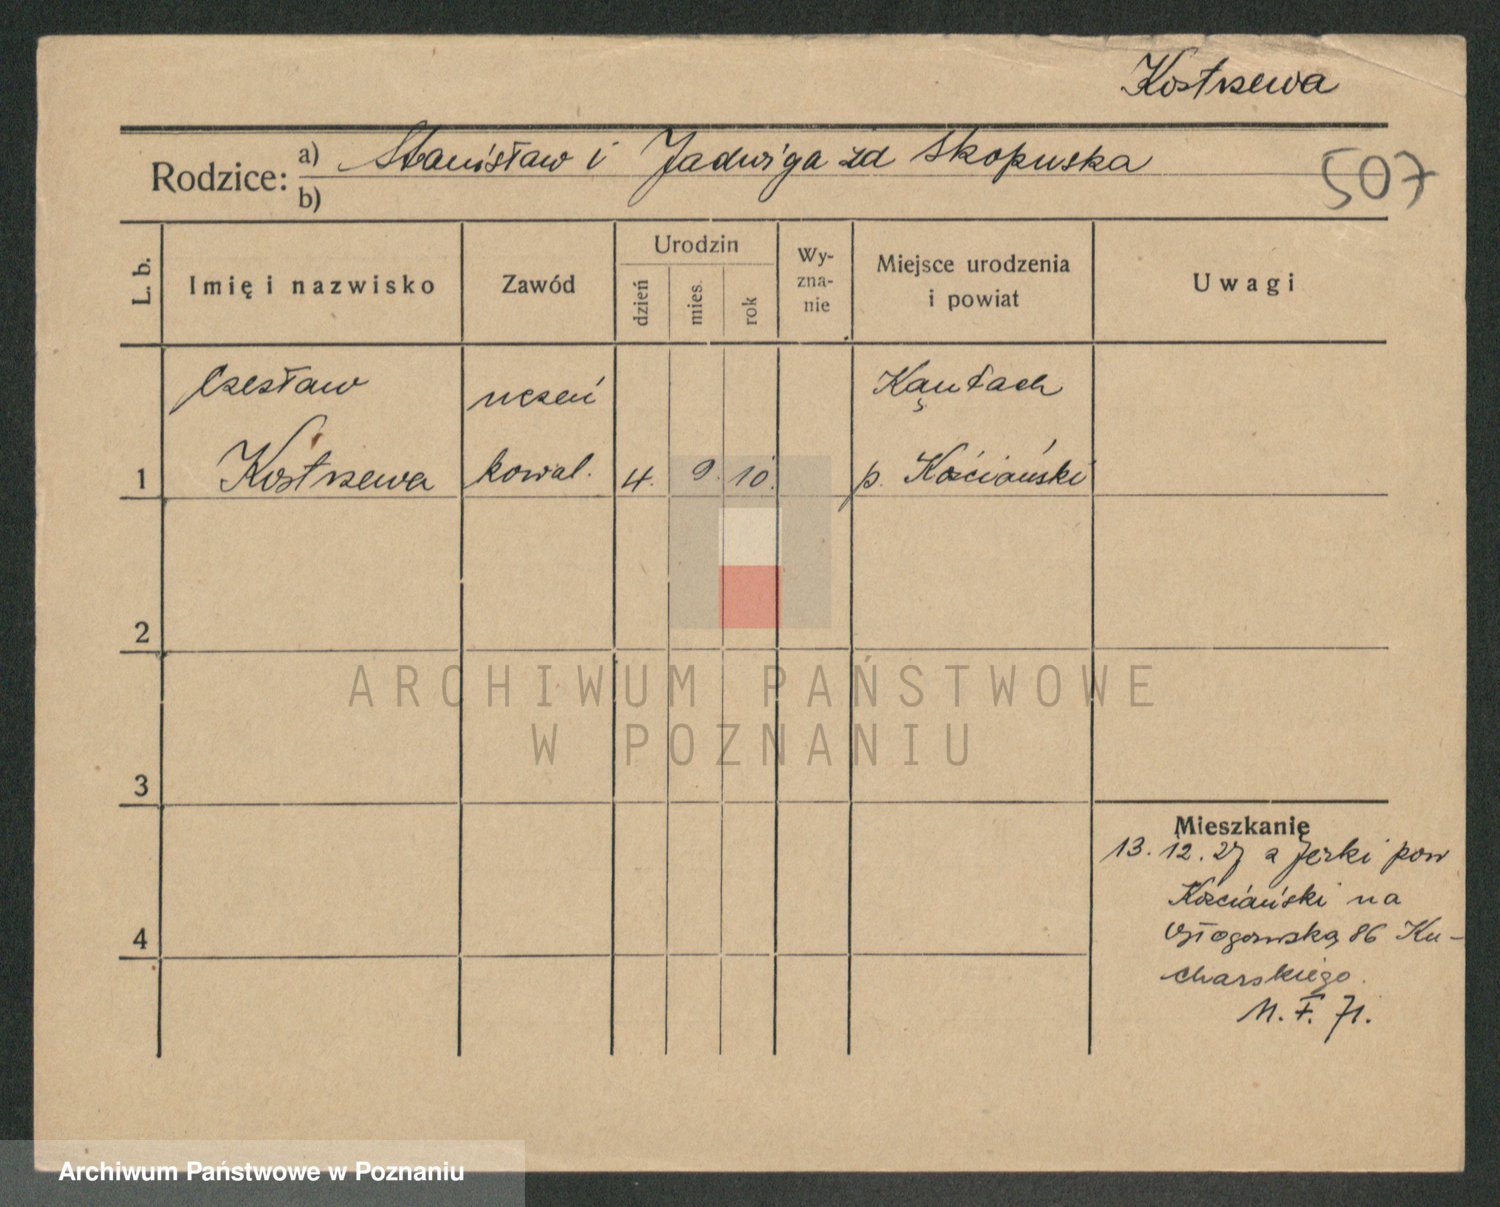 Kostrzewa
Rodzice: a) Stanisław i Jadwiga zd Skopuska
b)
507
L. b.
Imię i nazwisko
Zawód
Urodzin
dzień
mies.
rok
Wy-
zna-
nie
Miejsce urodzenia
i powiat
Uwagi
Czesław uczeń
1 Kostrzewa kowal. 4. 9. 10. p. Kościański
2
3
4
Mieszkanie
13. 12. 27 z Jerki pow
Kościański na
86 Ku-
charskiego.
ARCHIWUM PAŃSTWOWE
W POZNANIU
Archiwum Państwowe w Poznaniu